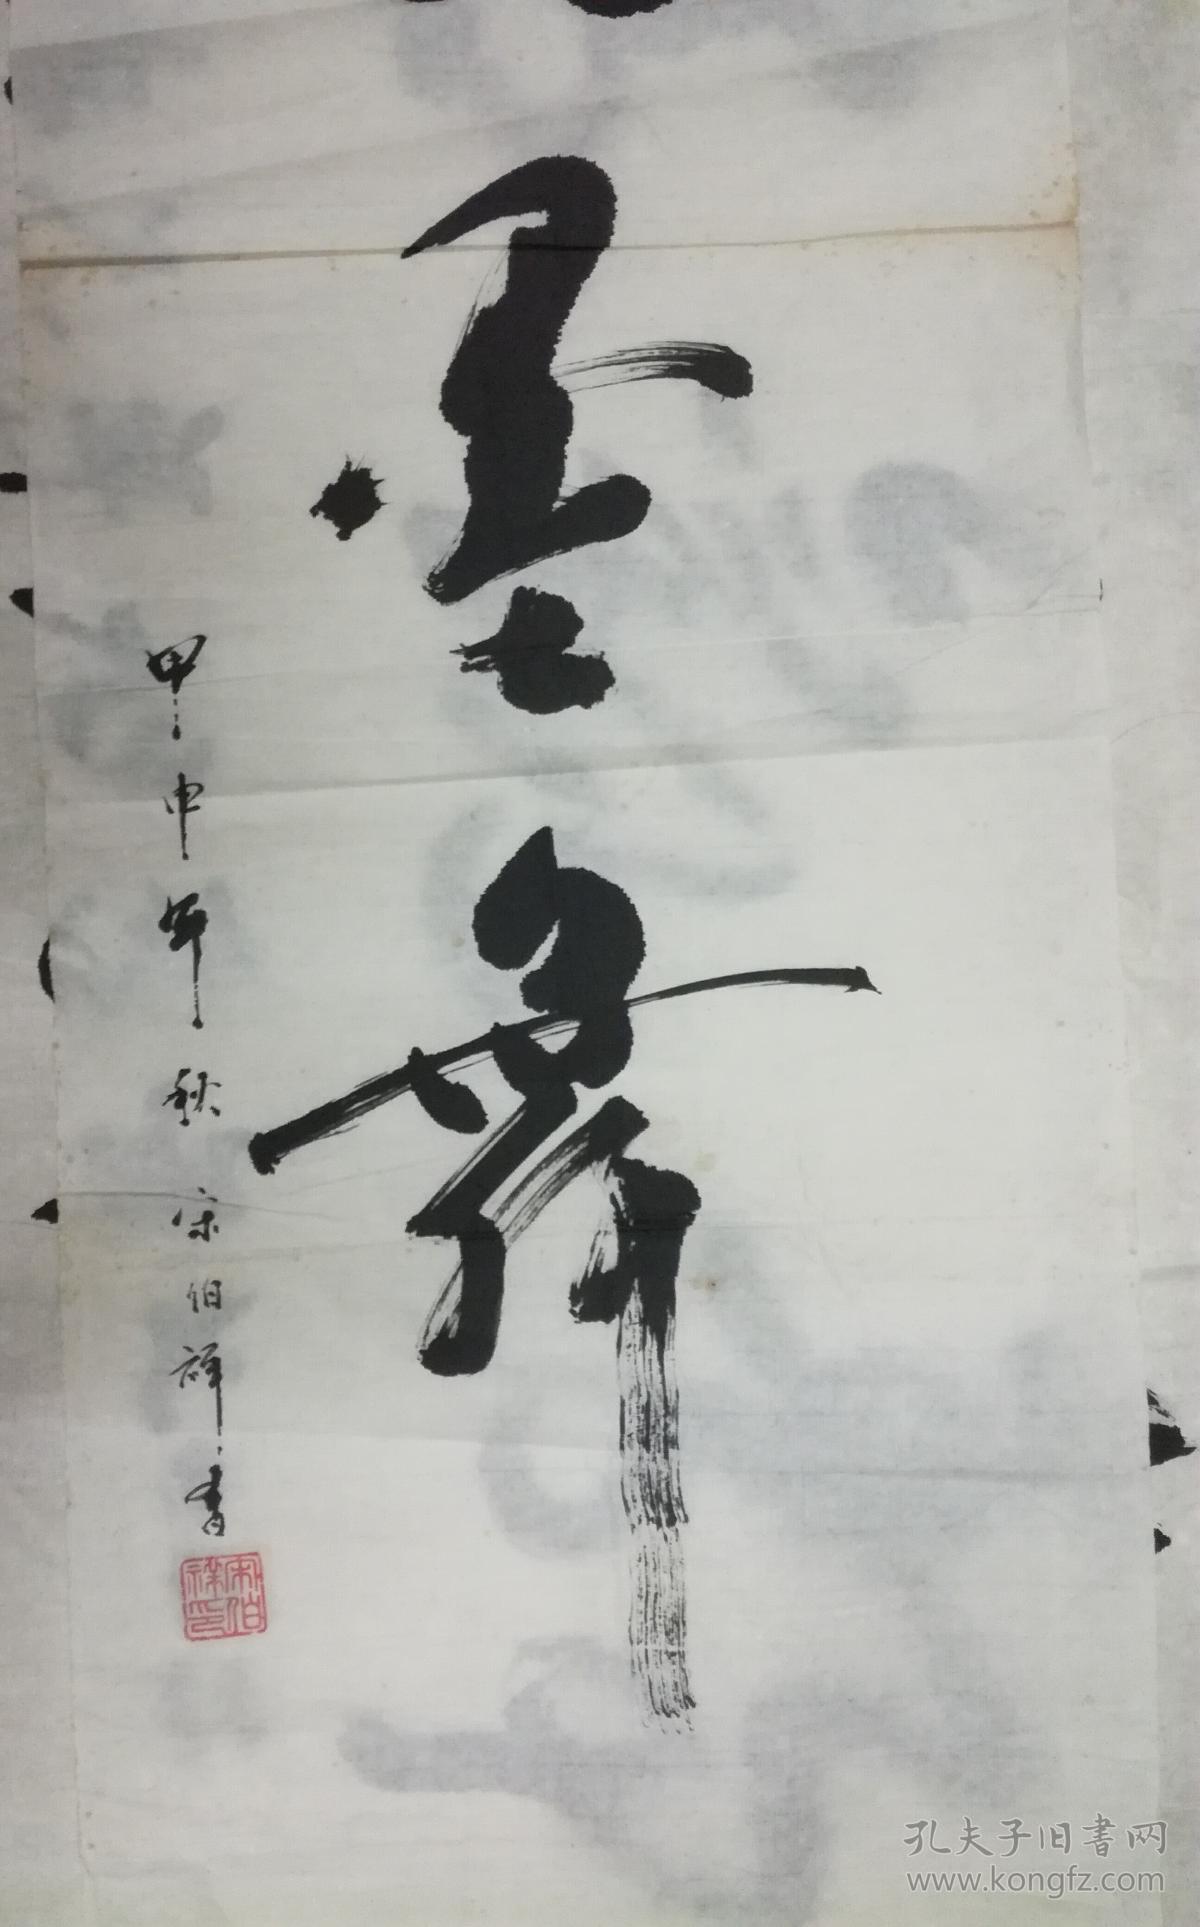 墨舞
甲申年秋宋伯祥书
宋伯祥印
孔夫子旧书网
www.kongfz.com